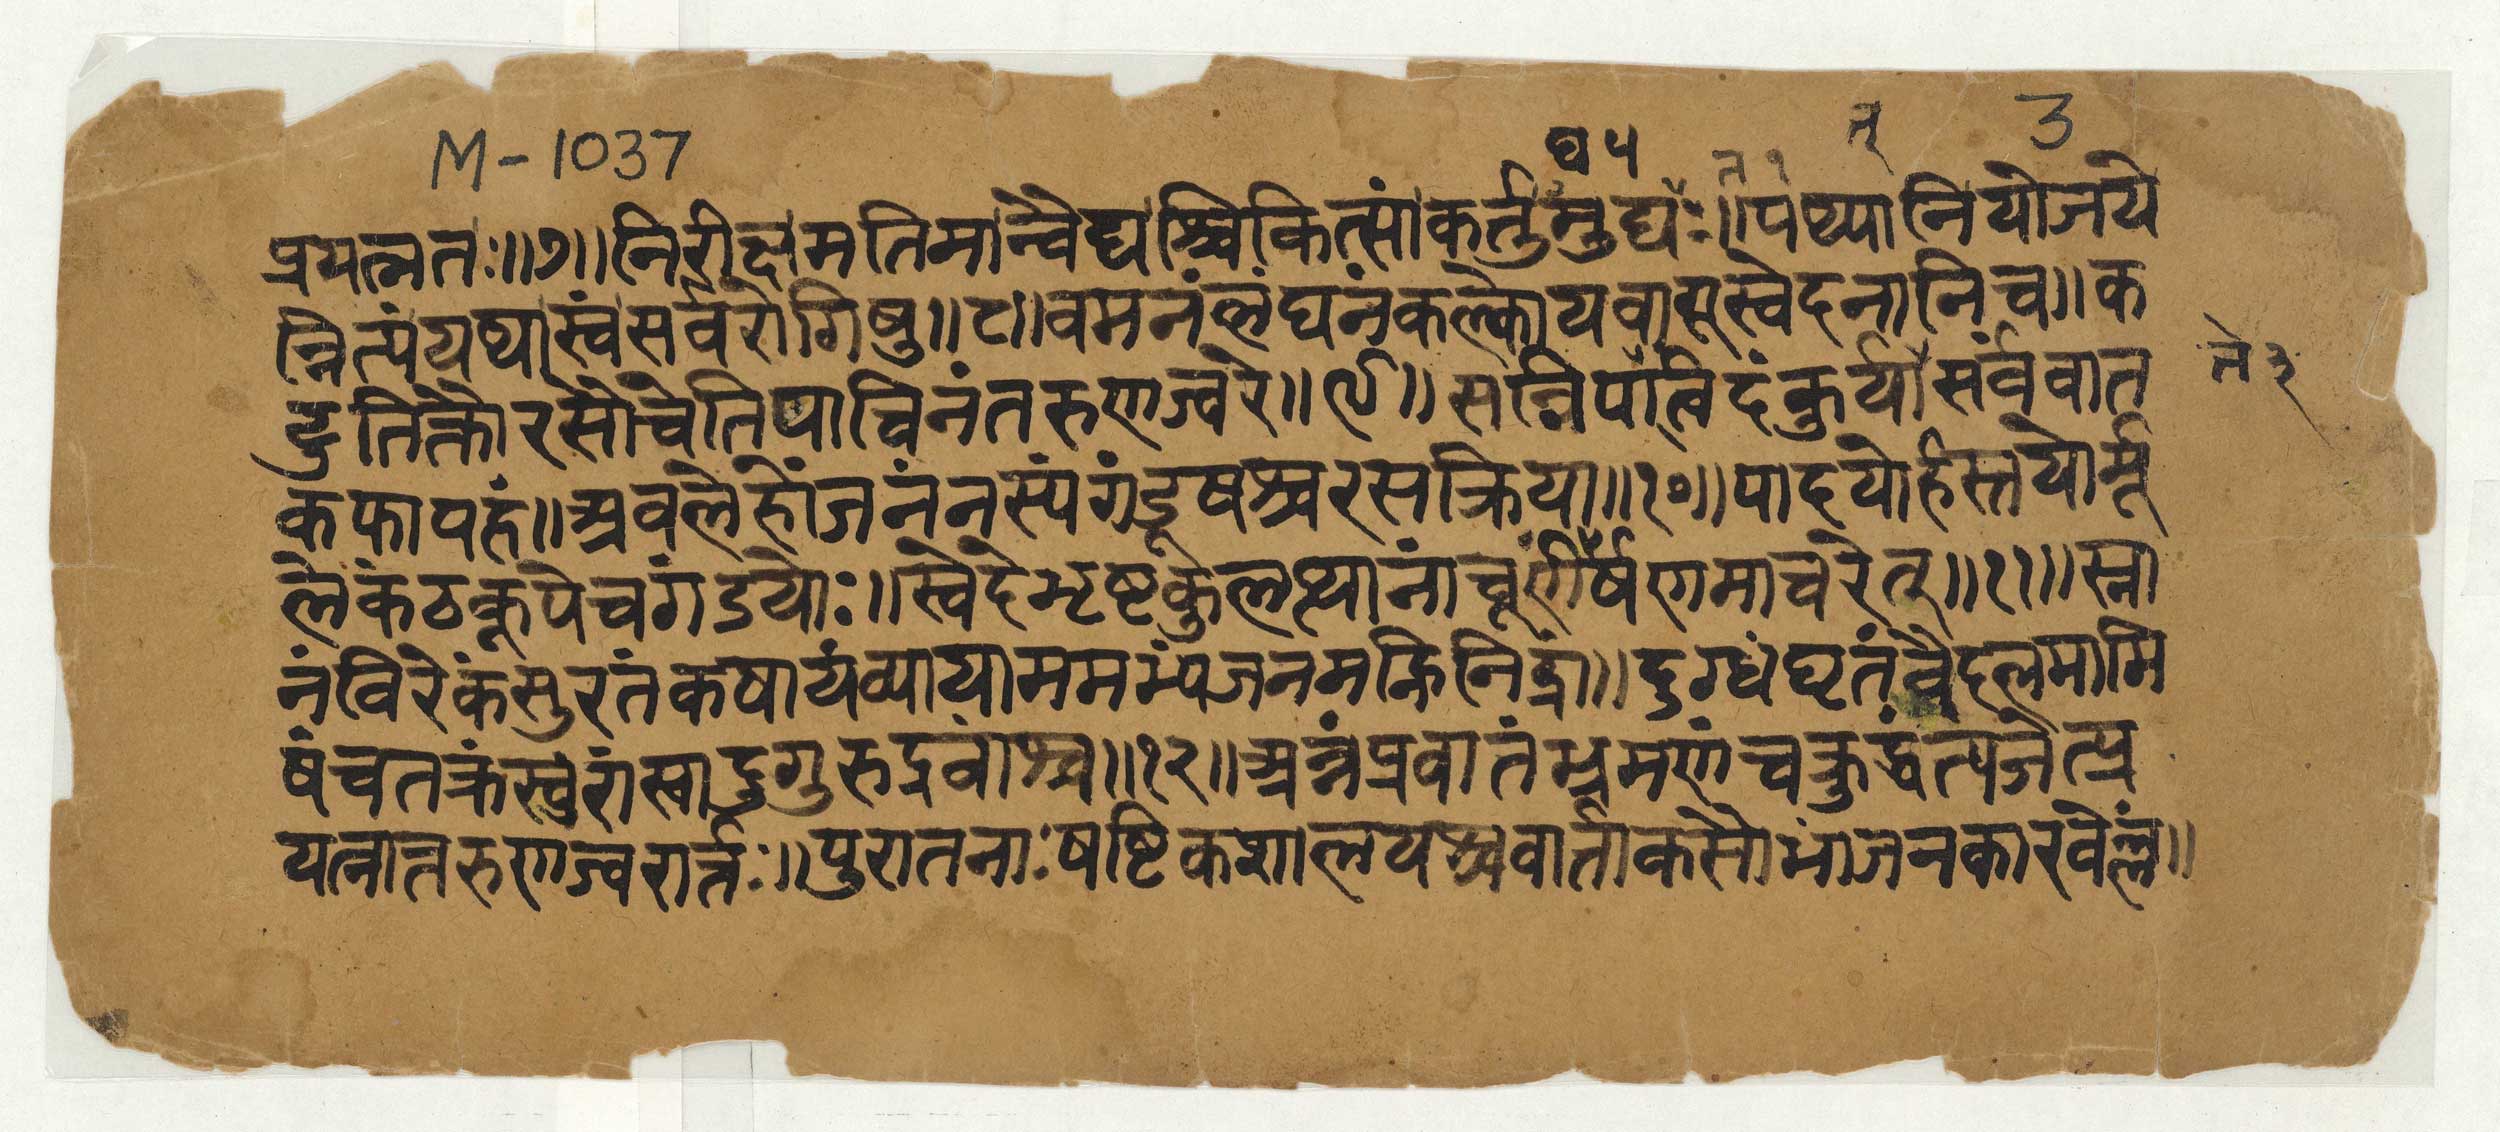 M-1037
घ ५
त् 3
प्रयत्नतः॥७॥निरीक्षमतिमान्वैद्यश्चिकित्सांकर्तुमुद्यः॥पथ्यानियोजये
न्नित्यंयथास्वंसर्वरोगिषु॥८॥वमनंलंघनंकल्कोयवागूस्वेदनानिच॥क
टुतिक्तौरसौचेतिपाचिनंतरुणज्वरे॥९॥सन्निपातिदंकुर्यासर्ववात
ते ३
कफापहं॥अवलेहोंजनंनस्यंगंडूषश्चरसक्रिया॥१०॥पादयोर्हस्तयोर्मू
लेकंठकूपेचगंडयोः॥स्वेदेभृष्टकुलत्थानांचूर्णर्घर्षणमाचरेत्॥११॥स्ना
नंविरेकंसुरतंकषायंव्यायाममभ्यंजनमह्निनिद्रां॥दुग्धंघृतंवैदलमामि
षंचतक्रंसुरांस्वादुगुरुद्रवांश्च॥१२॥अन्नंप्रवातंभ्रमणंचक्रुद्धंत्यजेत्प्र
यत्नात्तरुणज्वरार्त्तः॥पुरातनाःषष्टिकशालयश्चवार्ताकसौभांजनकारवेल्लं॥